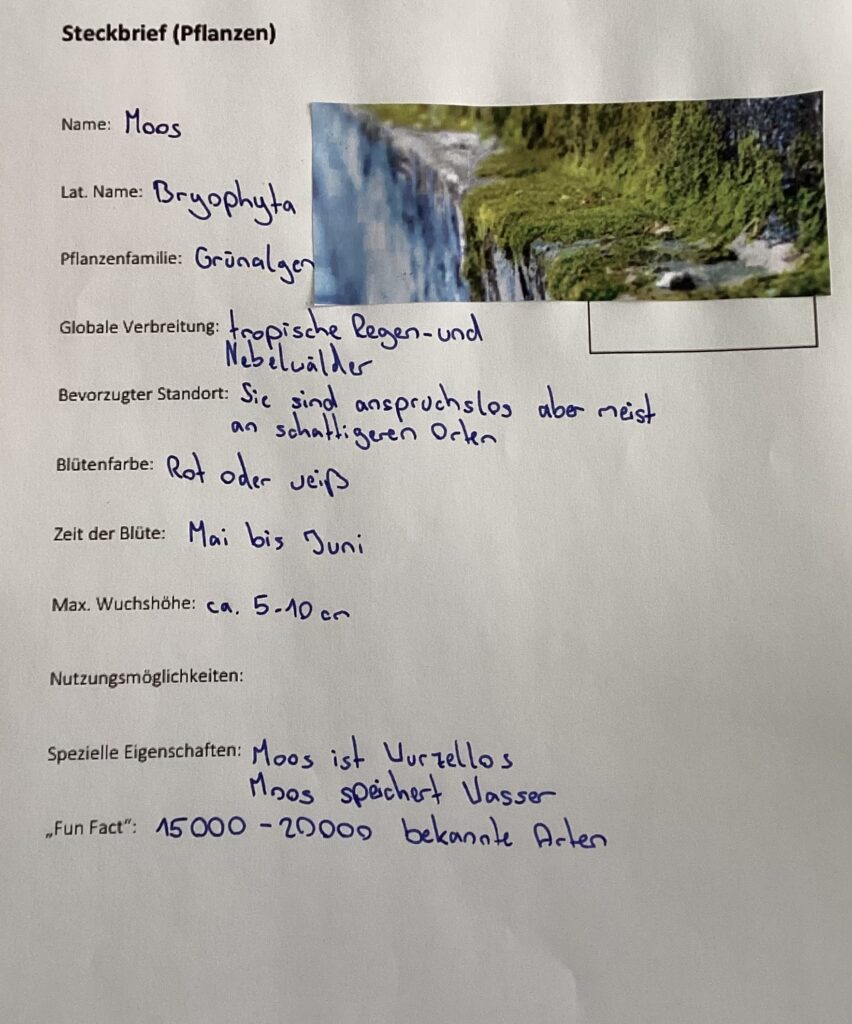 Steckbrief (Pflanzen)
Name: Moos
Lat. Name: Bryophyta
Pflanzenfamilie: Grünalgen
Globale Verbreitung: tropische Regen- und
Nebelwälder
Bevorzugter Standort: Sie sind anspruchslos aber meist
an schattigeren Orten
Blütenfarbe: Rot oder weiß
Zeit der Blüte: Mai bis Juni
Max. Wuchshöhe: ca. 5-10 cm
Nutzungsmöglichkeiten:
Spezielle Eigenschaften: Moos ist Wurzellos
Moos speichert Wasser
„Fun Fact“: 15000 - 20000 bekannte Arten